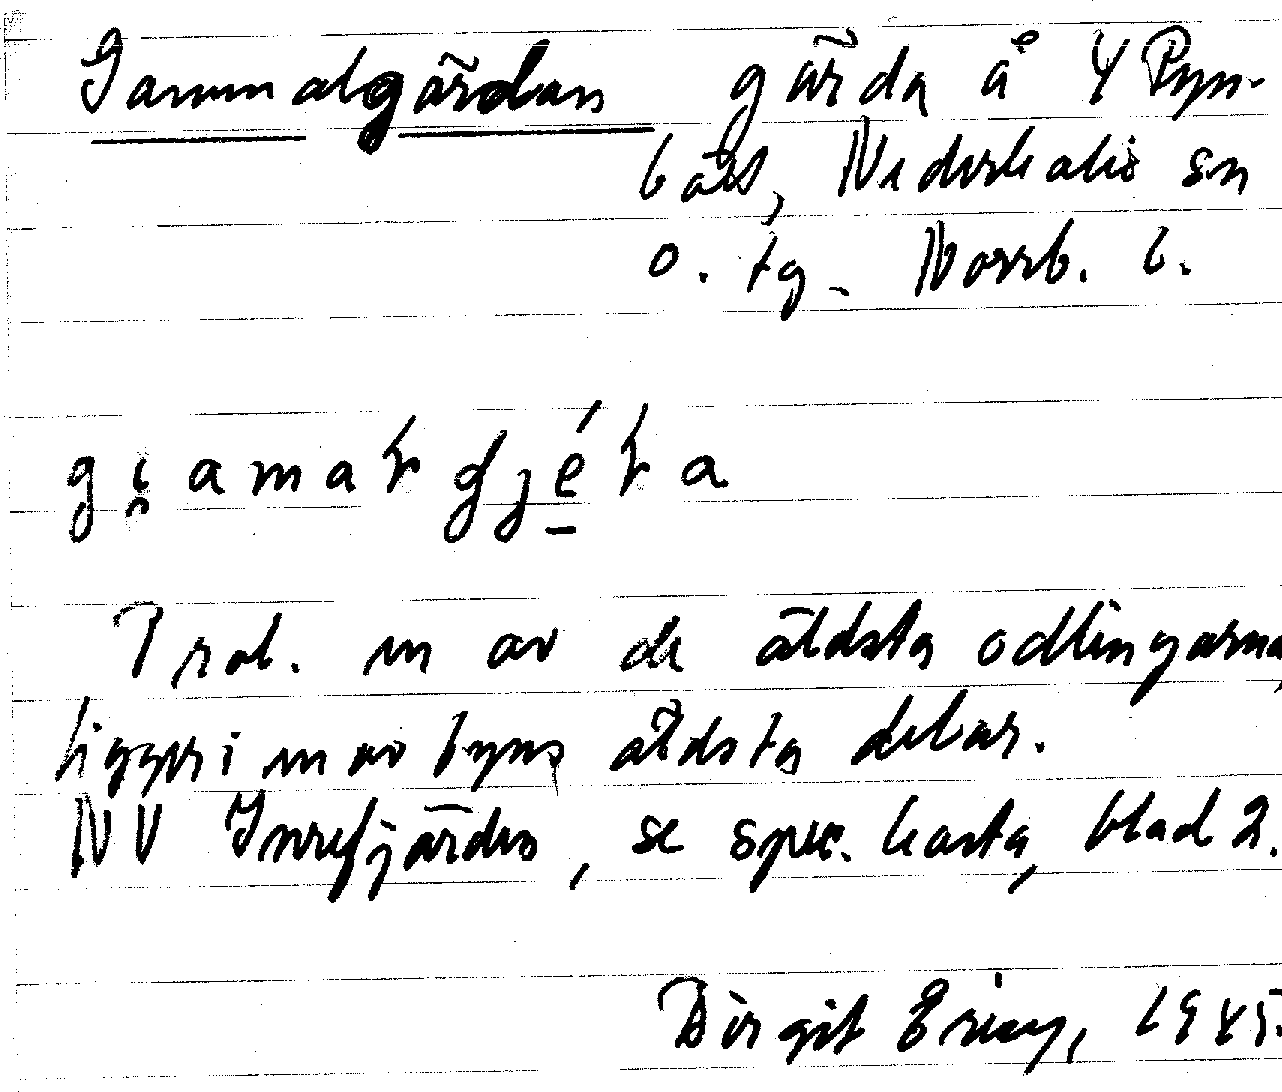 Gammalgärdan gärda å Y Ryn-
bäck, Nederkalix sn
o. tg. Norrb. l.
Trol. en av de äldsta odlingarna,
ligger i en av byns äldsta delar.
NV Inrefjärden, se spec. karta, blad 2.
Birgit Ering, 1945.